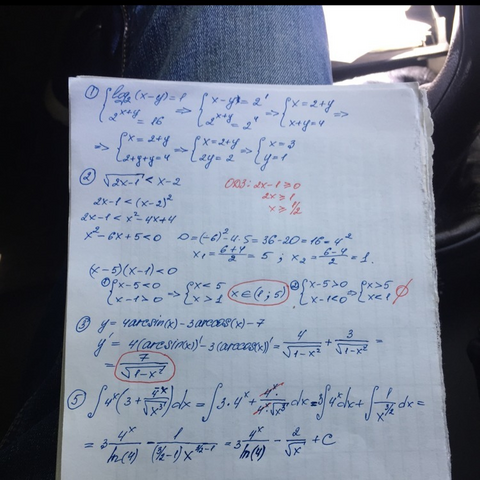 ① { log₂(x-y)=1 ; 2^(x+y) = 16 => { x-y = 2¹ ; 2^(x+y) = 2⁴ => { x=2+y ; x+y=4 =>
=> { x=2+y ; 2+y+y=4 => { x=2+y ; 2y=2 => { x=3 ; y=1
② √(2x-1) < x-2 ОДЗ: 2x-1 ≥ 0
2x ≥ 1
x ≥ 1/2
2x-1 < (x-2)²
2x-1 < x²-4x+4
x²-6x+5<0 D=(-6)²-4·5=36-20=16=4²
x₁ = (6+4)/2 = 5; x₂ = (6-4)/2 = 1.
(x-5)(x-1)<0
① { x-5<0 ; x-1>0 => { x<5 ; x>1 x∈(1;5) ② { x-5>0 ; x-1<0 => { x>5 ; x<1 ∅
③ y = 4arcsin(x) - 3arccos(x) - 7
y' = 4(arcsin(x))' - 3(arccos(x))' = 4/√(1-x²) + 3/√(1-x²) =
= 7/√(1-x²)
⑤ ∫4ˣ(3 + 4⁻ˣ/√x³)dx = ∫3·4ˣ + 4ˣ/(4ˣ√x³) dx = 3∫4ˣdx + ∫1/x^(3/2) dx =
= 3 4ˣ/ln(4) - 1/((3/2-1)x^(3/2-1)) = 3 4ˣ/ln(4) - 2/√x + C